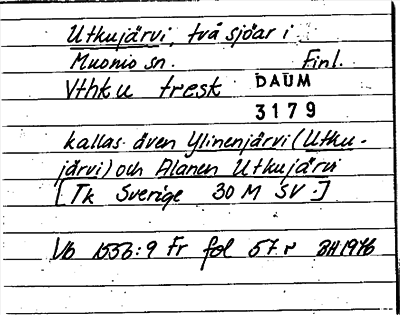 Utkujärvi, två sjöar i
Muonio sn. Finl.
Vthku tresk DAUM
3179
kallas även Ylinenjärvi (Utku-
järvi) och Alanen Utkujärvi
[Tk Sverige 30 M SV.]
Vb 1553:9 Fr fol 57 r BH 1976